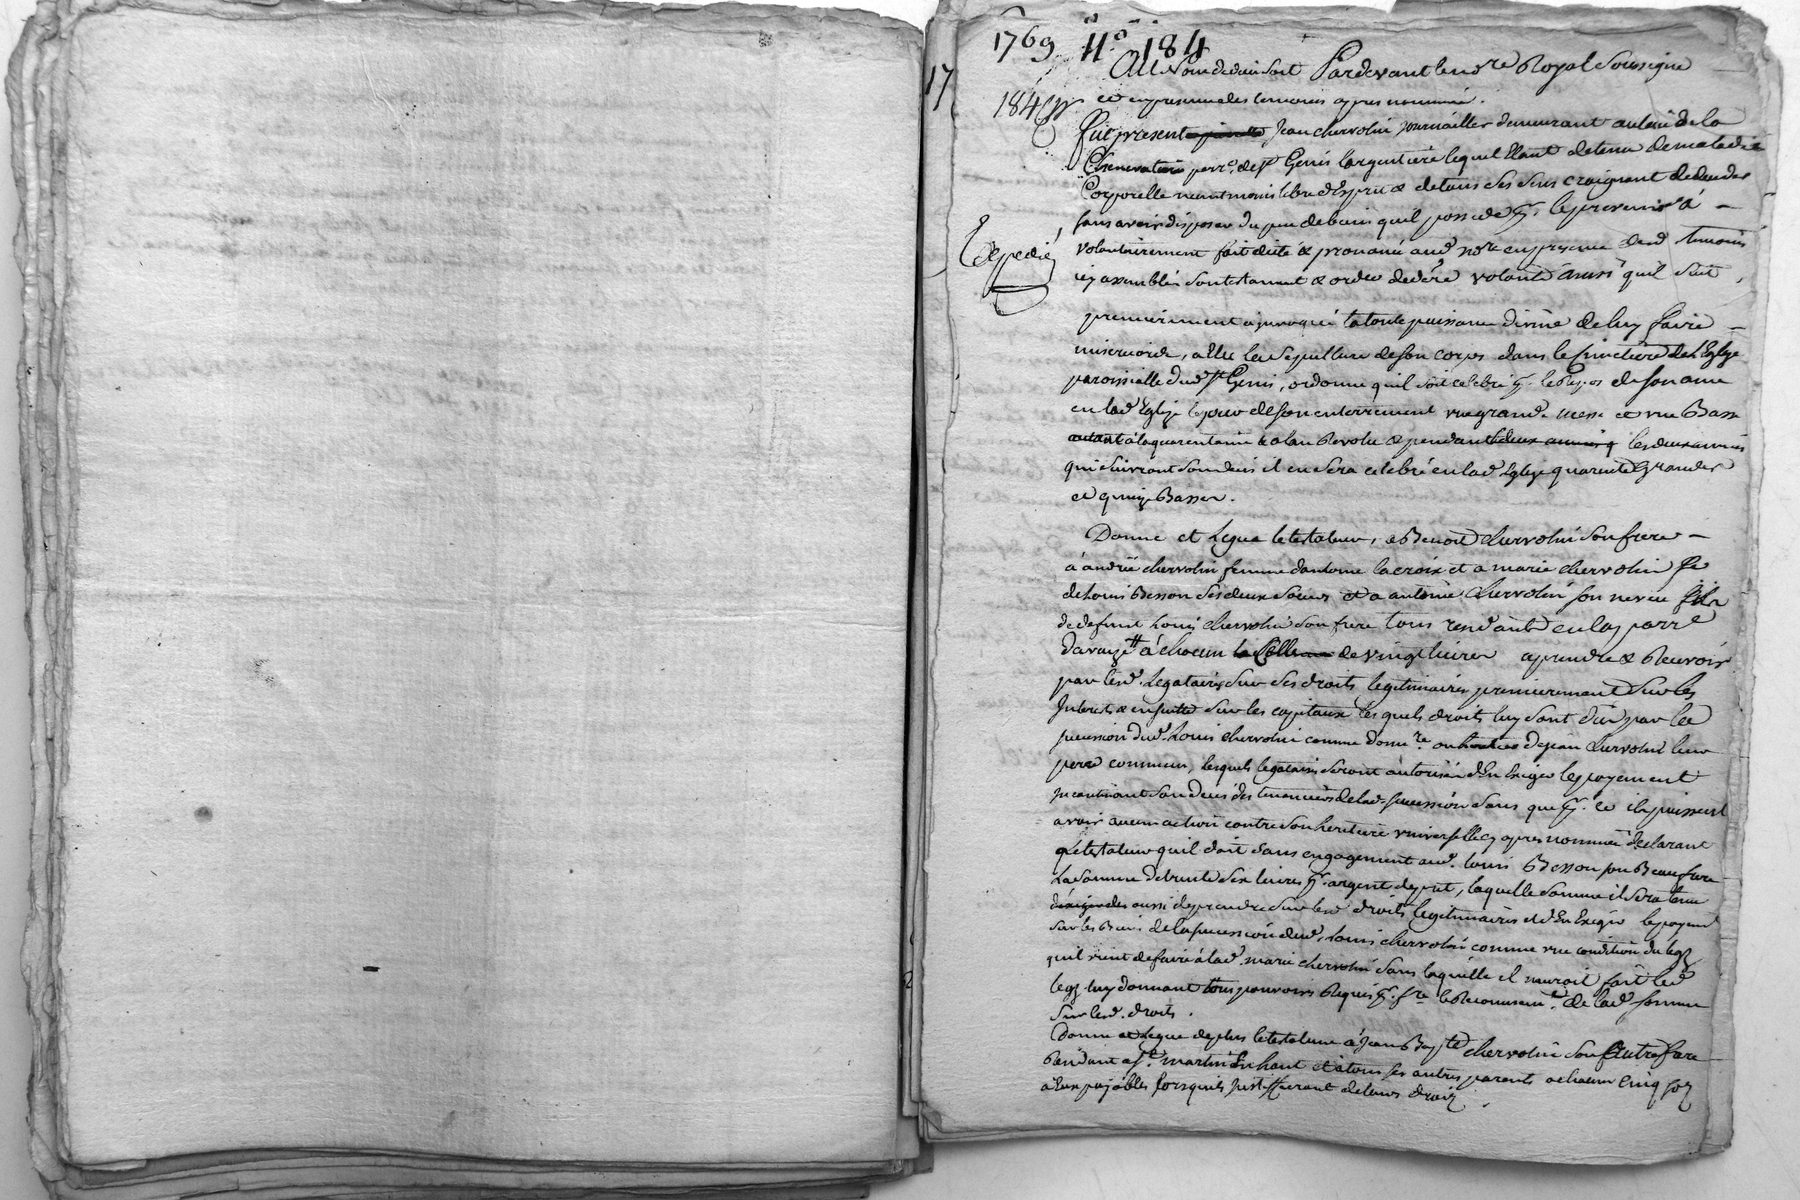 1769 N.º 184
17
Au Nom de dieu soit Pardevant le no.re Royal soussigné
184
et en presence des temoins apres nommés.
fut present Jean chervolin journaillier demeurant au lieu de la
parr.e de S.t Genis largentiere lequel Etant detenu de maladie
Corporelle neantmoins libre d'Esprit & de tous ses sens craignant de deceder
sans avoir disposer du peu de biens quil possede p.r le prevenir à
Expedié
volontairement fait dicté & prononcé aud no.re en presence desd temoins
icy assemblés son testament & ordre de der.e volonté ainsi quil suit
premierement a invoqué la toute puissance divine de luy faire
misericorde, a Elu la sepulture de son corps dans le cimetiere de l'Eglise
paroissialle dud S.t Genis, ordonne quil soit celebré p.r le Repos de son ame
en lad Eglise le jour de son enterrement une grand messe et une Basse
autant à la quarentaine & a lan Revolu & pendant les deux années
qui suivront son deces il en sera celebré en lad Eglise quarente Grandes
et quinze Basses.
Donne et Legue le testateur, a Benoit chervolin son frere
à andrée chervolin femme dantoine lacroix et a marie chervolin fe
de Louis Besson ses deux soeurs et a antoine chervolin son neveu fils
de defunt Louis chervolin son frere tous residants en la parr.e
davaize à chacun de vingt livres a prendre & Recevoir
par lesd. Legataires sur ses droits legitimaires premierement sur les
Interets & ensuitte sur les capitaux lesquels droits luy sont dus par la
succession dud. Louis chervolin comme don.re ou heritier de jean chervolin leur
pere commun, lesquels legataires seront autorisés d'En Exiger le payement
incontinant son deces des tenanciers de lad. succession sans que p.r ce ils puissent
avoir aucun action contre son heritiere universelle cy apres nommée declarant
le testateur quil doit sans engagement aud. Louis Besson son Beaufrere
La somme de trente six livres p.r argent depret, laquelle somme il sera tenu
aussi de prendre sur lesd droits legitimaires et d'En Exiger le payem.t
sur les Biens de la succession dud. Louis chervolin comme une condition du legs
quil vient de faire à lad. marie chervolin sans laquelle il nauroit fait led
legs luy donnant tous pouvoirs Requis p.r f.re le Recouvrem.t de lad somme
sur lesd. droits.
Donne et Legue de plus le testateur à Jean Bap.te chervolin son autre frere
Residant a S.t martin En haut et à tous ses autres parents a chacun cinq sols
a Eux payables lorsquils justiffieront de leurs droits.